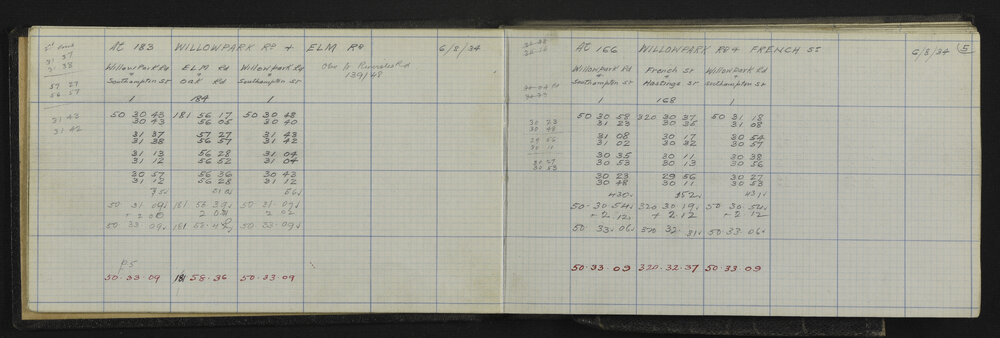 At 183 WILLOWPARK RD + ELM RD 6/8/34
Willow Park Rd ELM RD Willow park Rd
Southampton St Oak Rd Southampton St
139/48
1 184 1
50 30 43 181 56 17 50 30 48
30 43 56 05 30 40
31 37 57 27 31 43
31 38 56 57 31 42
31 13 56 28 31 04
31 12 56 52 31 04
30 57 56 36 30 43
31 12 56 28 31 12
50 31 09 181 50 31 07
2 02
50 33 09 50 33 09
50.33.09 181 58.36 50.33.09
57 27
56 57
31 43
31 42
At 166 WILLOWPARK RD & FRENCH ST 6/8/34 5
Willow Park Rd French St Willow Park Rd
Southampton St Hastings St Southampton St
1 168 1
50 30 58 320 30 37 50 31 18
31 23 30 35 31 08
31 08 30 17 30 54
31 02 30 32 30 57
30 35 30 11 30 38
30 53 30 13 30 56
30 23 29 56 30 27
30 48 30 11 30 53
430 152 431
50-30 54 320 30 19 50 30 54
+2 12 + 2 12 +2 12
50 33 06 320 32 31 50.33.06
50.33.09 320.32.37 50.33.09
30 23
30 48
29 56
30 11
30 27
30 53